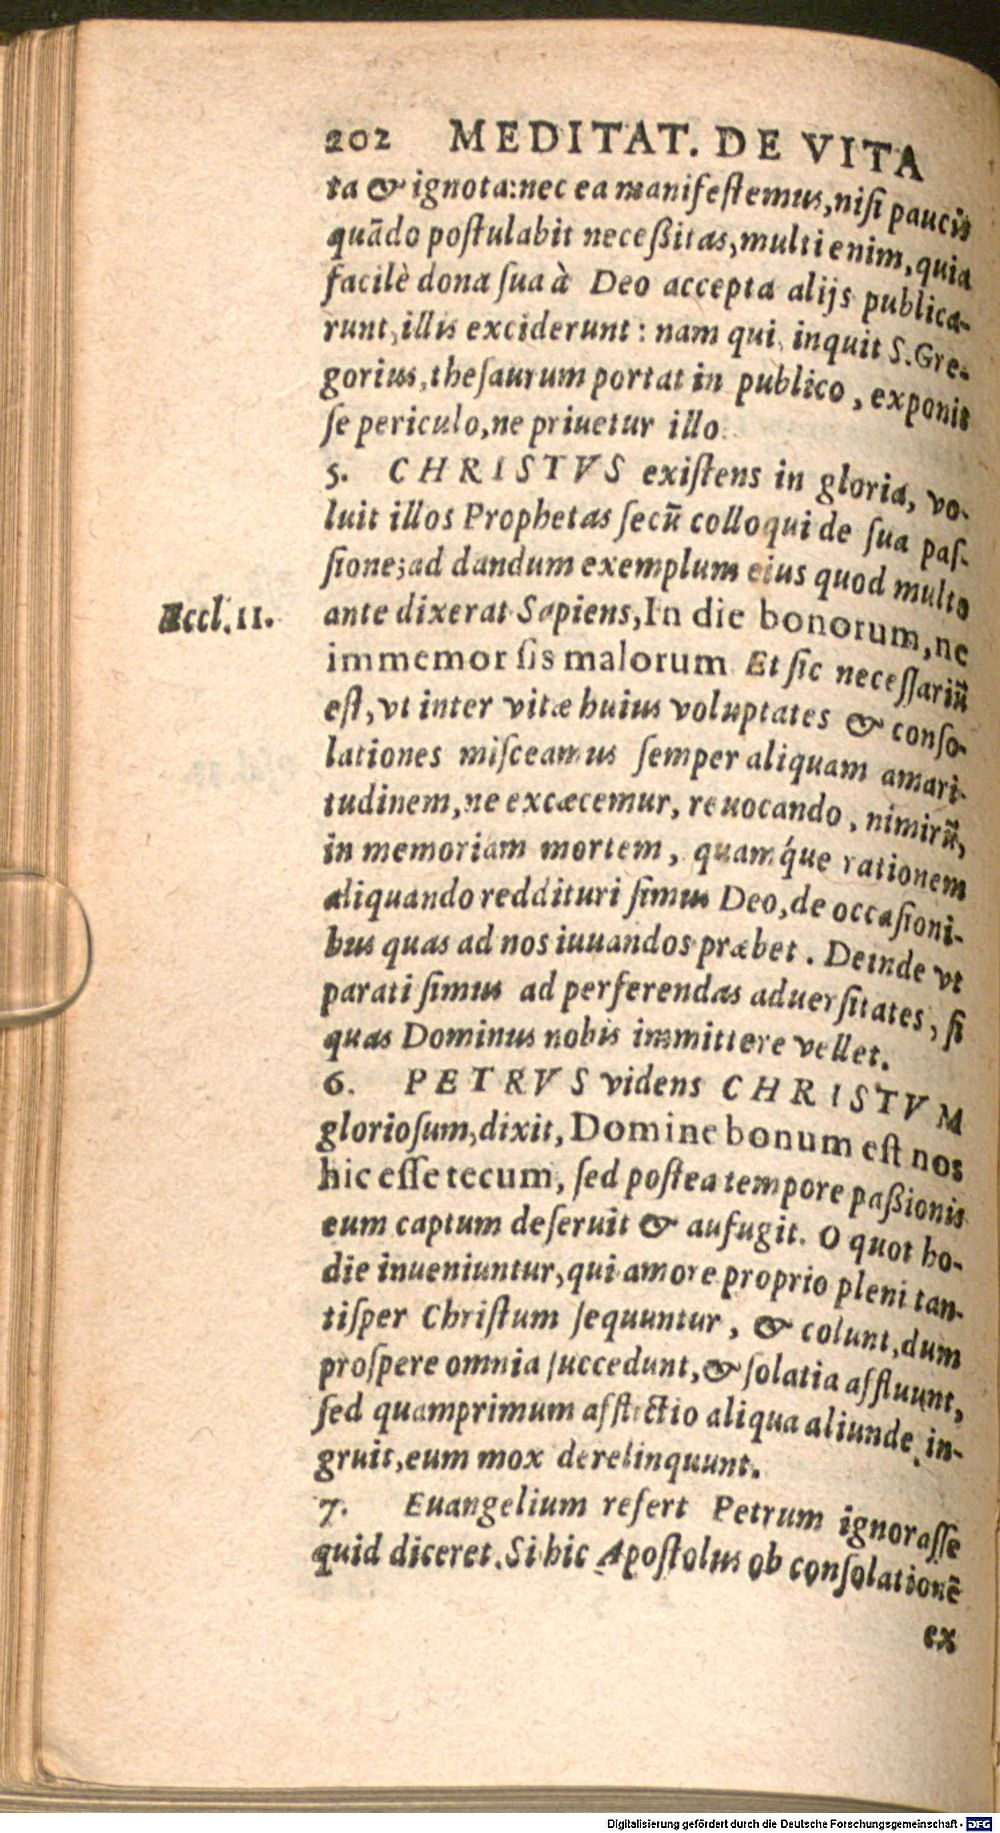 202 MEDITAT. DE VITA
ta & ignota: nec ea manifestemus, nisi paucis
quādo postulabit neceßitas, multi enim, quia
facilè dona sua à Deo accepta alijs publica-
runt, illis exciderunt: nam qui, inquit S. Gre-
gorius, thesaurum portat in publico, exponit
se periculo, ne priuetur illo.
5. CHRISTVS existens in gloria, vo-
luit illos Prophetas secū colloqui de sua pas-
sione; ad dandum exemplum eius quod multo
Eccl. 11. ante dixerat Sapiens, In die bonorum, ne
immemor sis malorum. Et sic necessariū
est, vt inter vitæ huius voluptates & conso-
lationes misceamus semper aliquam amari-
tudinem, ne excæcemur, reuocando, nimirū,
in memoriam mortem, quamq́ue rationem
aliquando reddituri simus Deo, de occasioni-
bus quas ad nos iuuandos præbet. Deinde vt
parati simus ad perferendas aduersitates, si
quas Dominus nobis immittere vellet.
6. PETRVS videns CHRISTVM
gloriosum, dixit, Domine bonum est nos
hic esse tecum, sed postea tempore paßionis
eum captum deseruit & aufugit. O quot ho-
die inueniuntur, qui amore proprio pleni tan-
tisper Christum sequuntur, & colunt, dum
prospere omnia succedunt, & solatia affluunt,
sed quamprimum afflictio aliqua aliunde in-
gruit, eum mox derelinquunt.
7. Euangelium refert Petrum ignorasse
quid diceret. Si hic Apostolus ob consolationē
ex
Digitalisierung gefördert durch die Deutsche Forschungsgemeinschaft - DFG